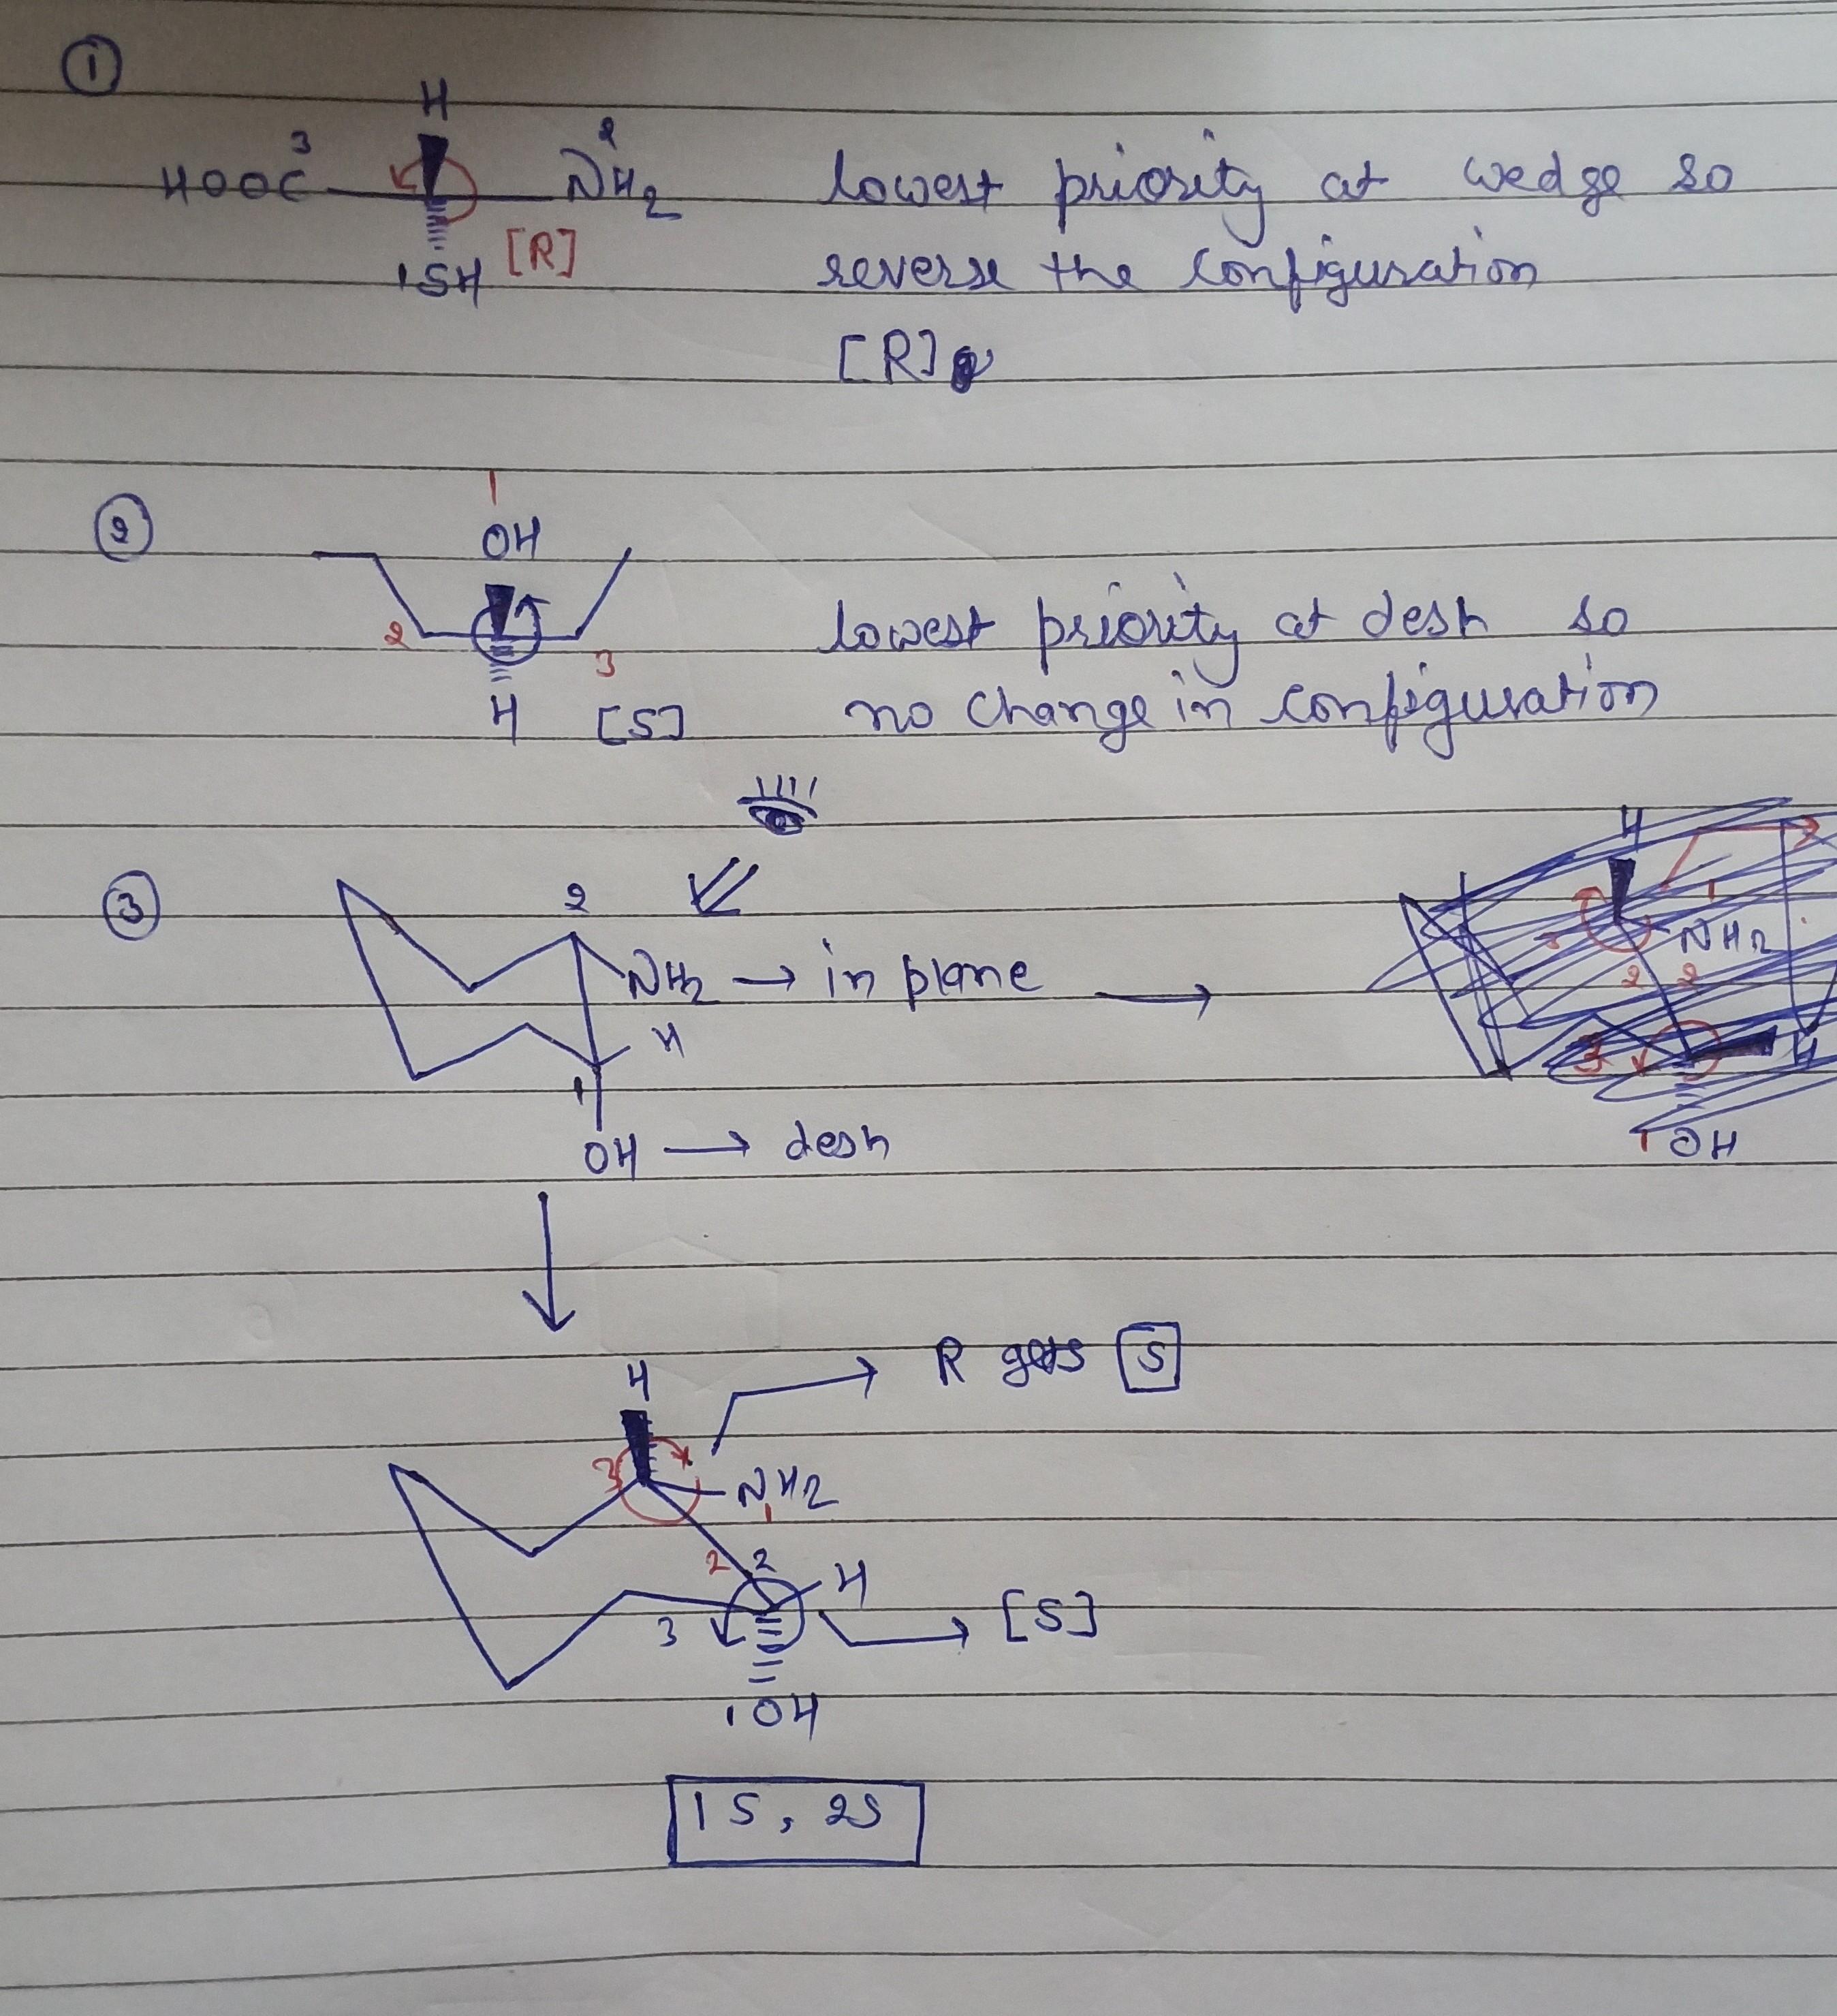 ①
H
3 2
HOOC NH2 lowest priority at wedge so
1SH [R] reverse the configuration
[R]
②
1
OH
2 3 lowest priority at desh so
H [S] no change in configuration
③
2
NH2 → in plane →
H
1
OH → desh
H
NH2
2 2
3
H
1 OH
H R [S]
3 NH2
1
2 2 H
3 [S]
1 OH
1S, 2S